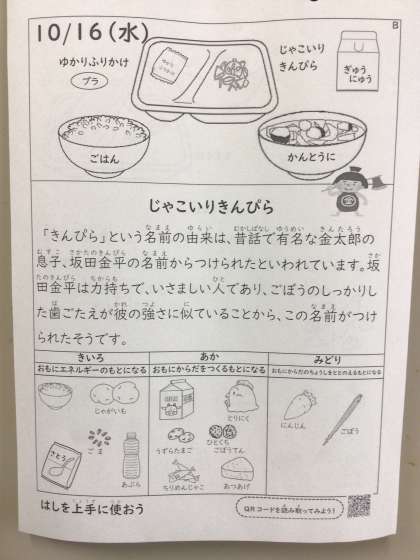 B
10/16(水)
ゆかりふりかけ
プラ
じゃこいり
きんぴら
ぎゅう
にゅう
ごはん
かんとうに
金
じゃこいりきんぴら
「きんぴら」という名前の由来は、昔話で有名な金太郎の
息子、坂田金平の名前からつけられたといわれています。坂
田金平は力持ちで、いさましい人であり、ごぼうのしっかりし
た歯ごたえが彼の強さに似ていることから、この名前がつけ
られたそうです。
きいろ
おもにエネルギーのもとになる
あか
おもにからだをつくるもとになる
みどり
おもにからだのちょうしをととのえるもとになる
じゃがいも
ごま
さとう
あぶら
とりにく
うずらたまご
ひとくち
ごぼうてん
ちりめんじゃこ
あつあげ
にんじん
ごぼう
はしを上手に使おう
QRコードを読み取ってみよう!